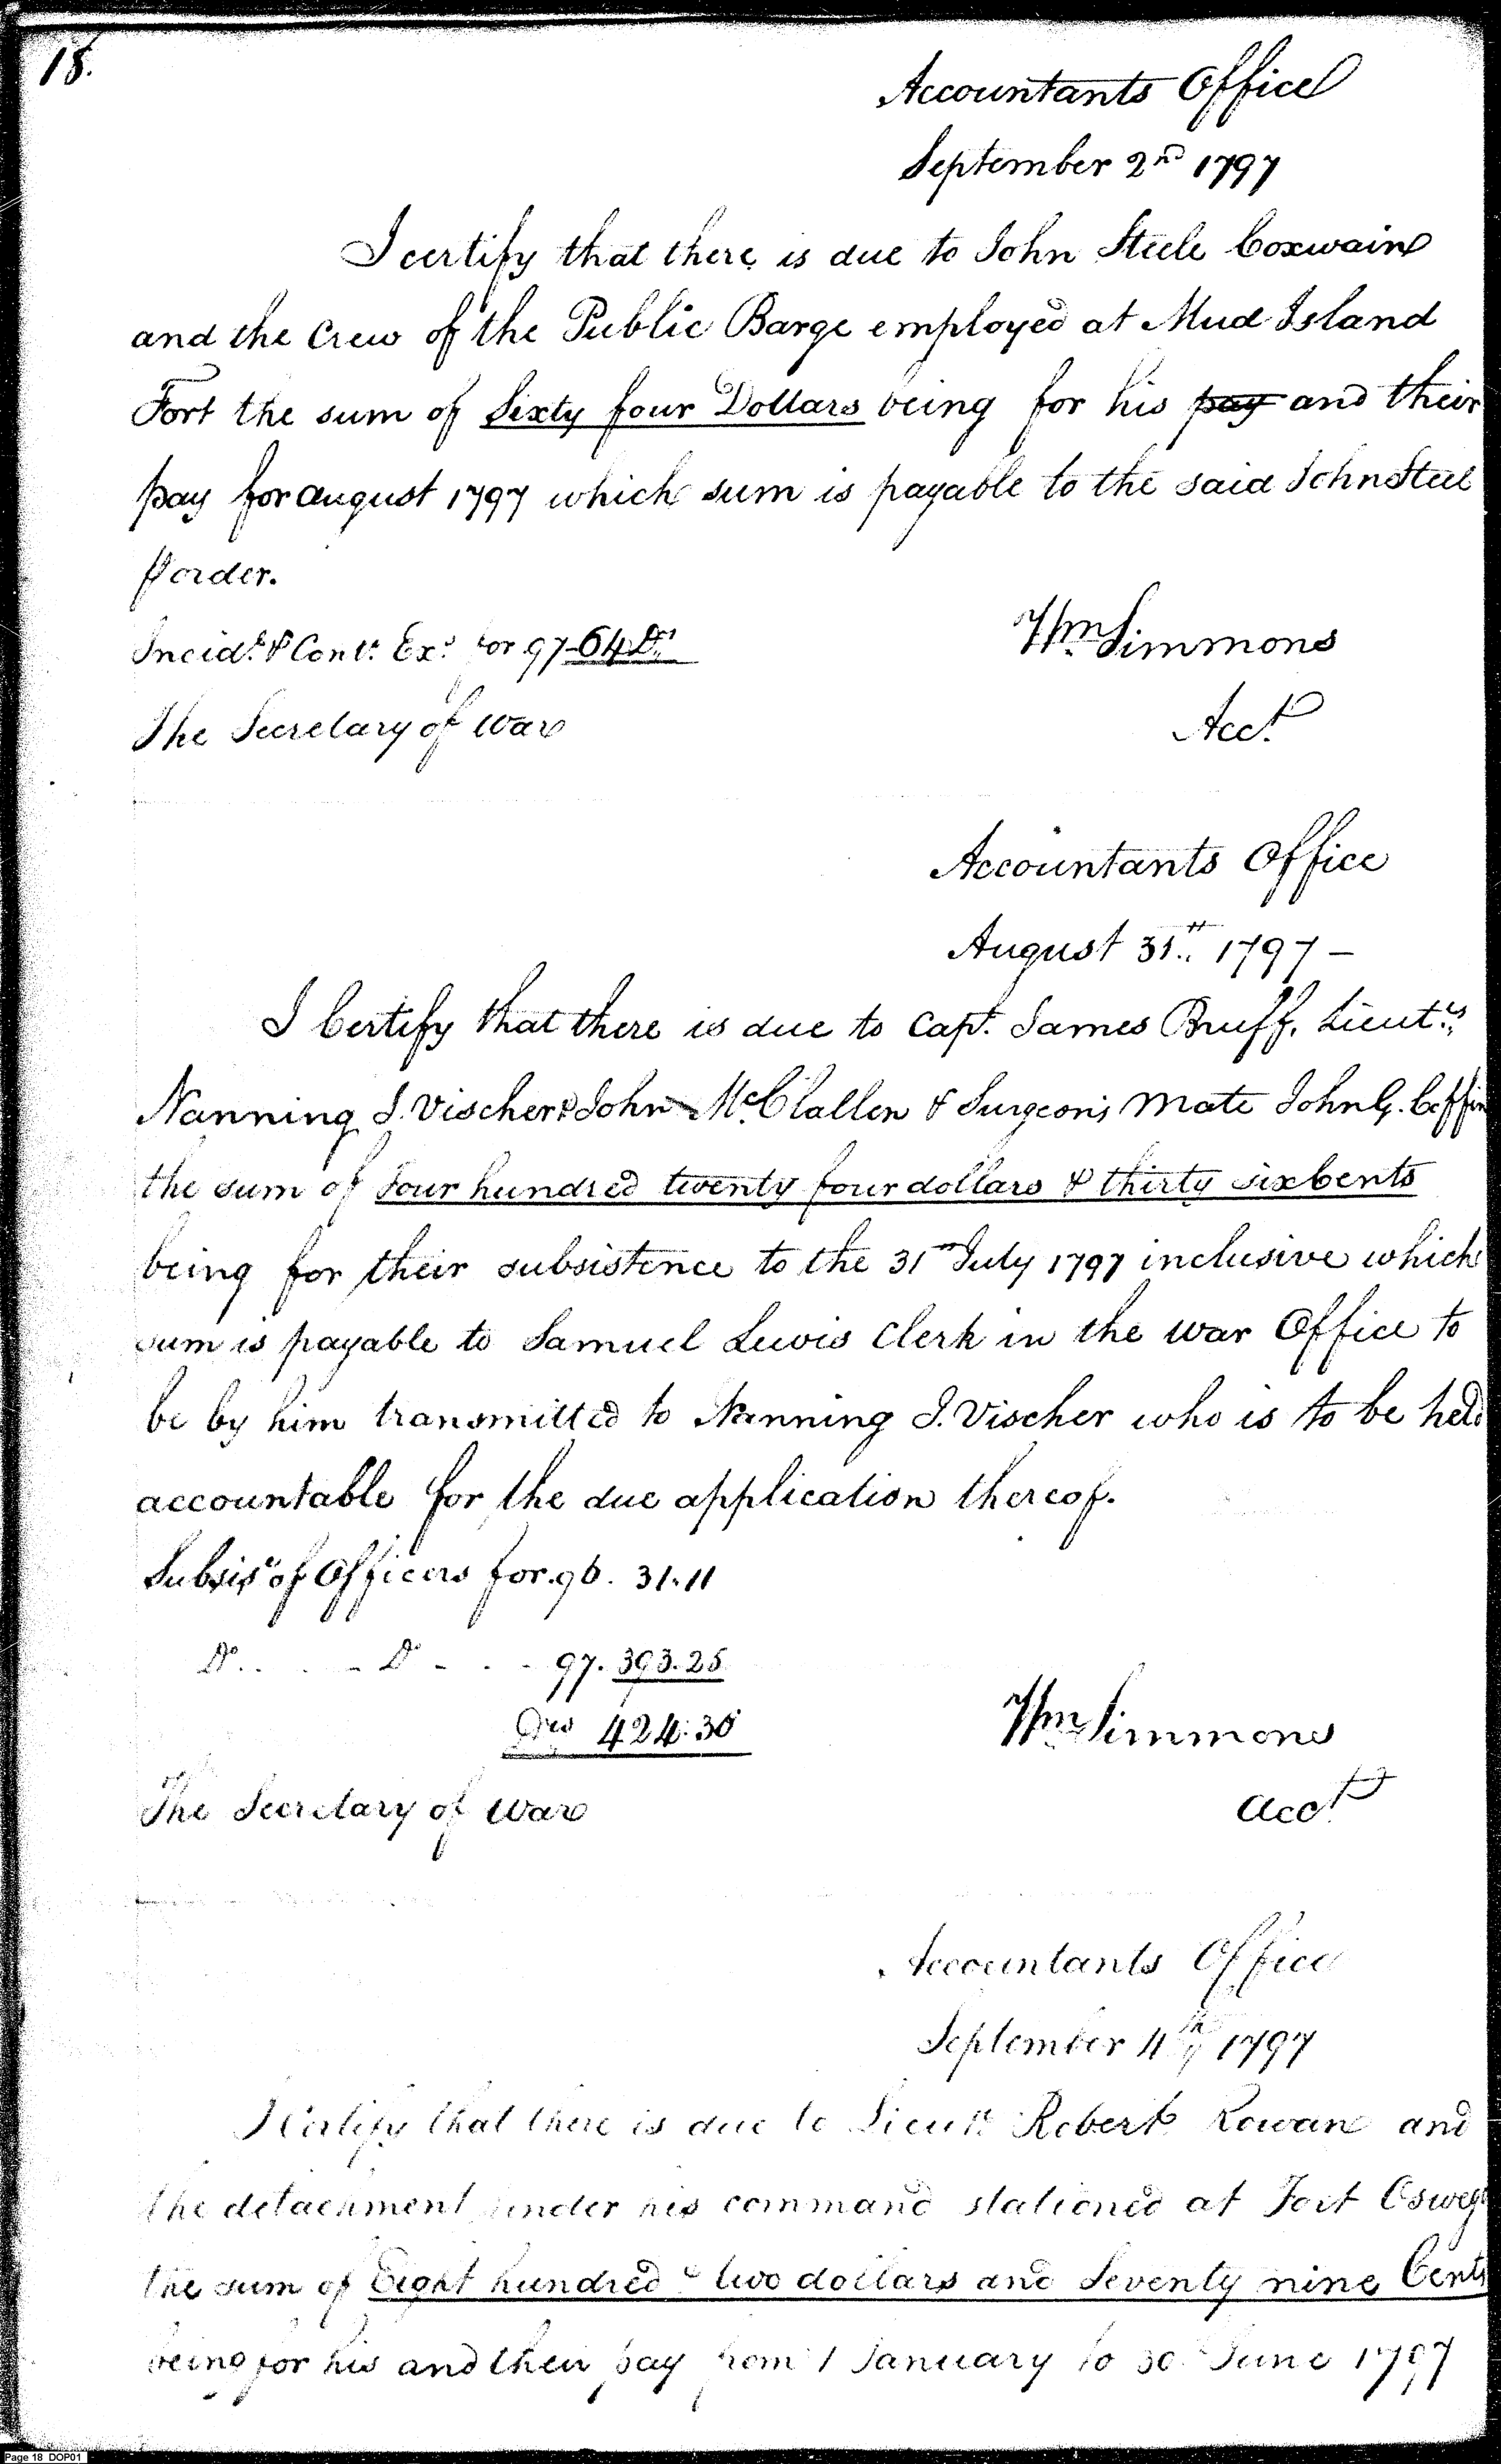 18.
Accountants Office
September 2nd 1797
I certify that there is due to John Steele Coxwain
and the Crew of the Public Barge employed at Mud Island
Fort the sum of Sixty four Dollars being for his pay and their
pay for august 1797 which sum is payable to the said John Steel
⅌ order.
Incidt. & Cont. Exs. for 97-64 Drs.
Wm. Simmons
The Secretary of War
Acct.
Accountants Office
August 31st. 1797 -
I Certify that there is due to Capt. James Bruff, Lieuts.
Nanning J. Vischer & John McClallen & Surgeon's Mate John G. Coffin
the sum of Four hundred twenty four dollars & thirty six Cents
being for their subsistence to the 31st July 1797 inclusive which
sum is payable to Samuel Lewis Clerk in the War Office to
be by him transmitted to Nanning J. Vischer who is to be held
accountable for the due application thereof.
Subsise. of Officers for 96. 31.11
Do. . . - Do - . . - 97. 393.25
Drs 424.36
Wm. Simmons
The Secretary of War
Acct.
Accountants Office
September 4th 1797
I Certify that there is due to Lieut. Robert Rowan and
the detachment under his command stationed at Fort Oswego
the sum of Eight hundred & two dollars and Seventy nine Cents
being for his and their pay from 1 January to 30 June 1797
Page 18 DOP01